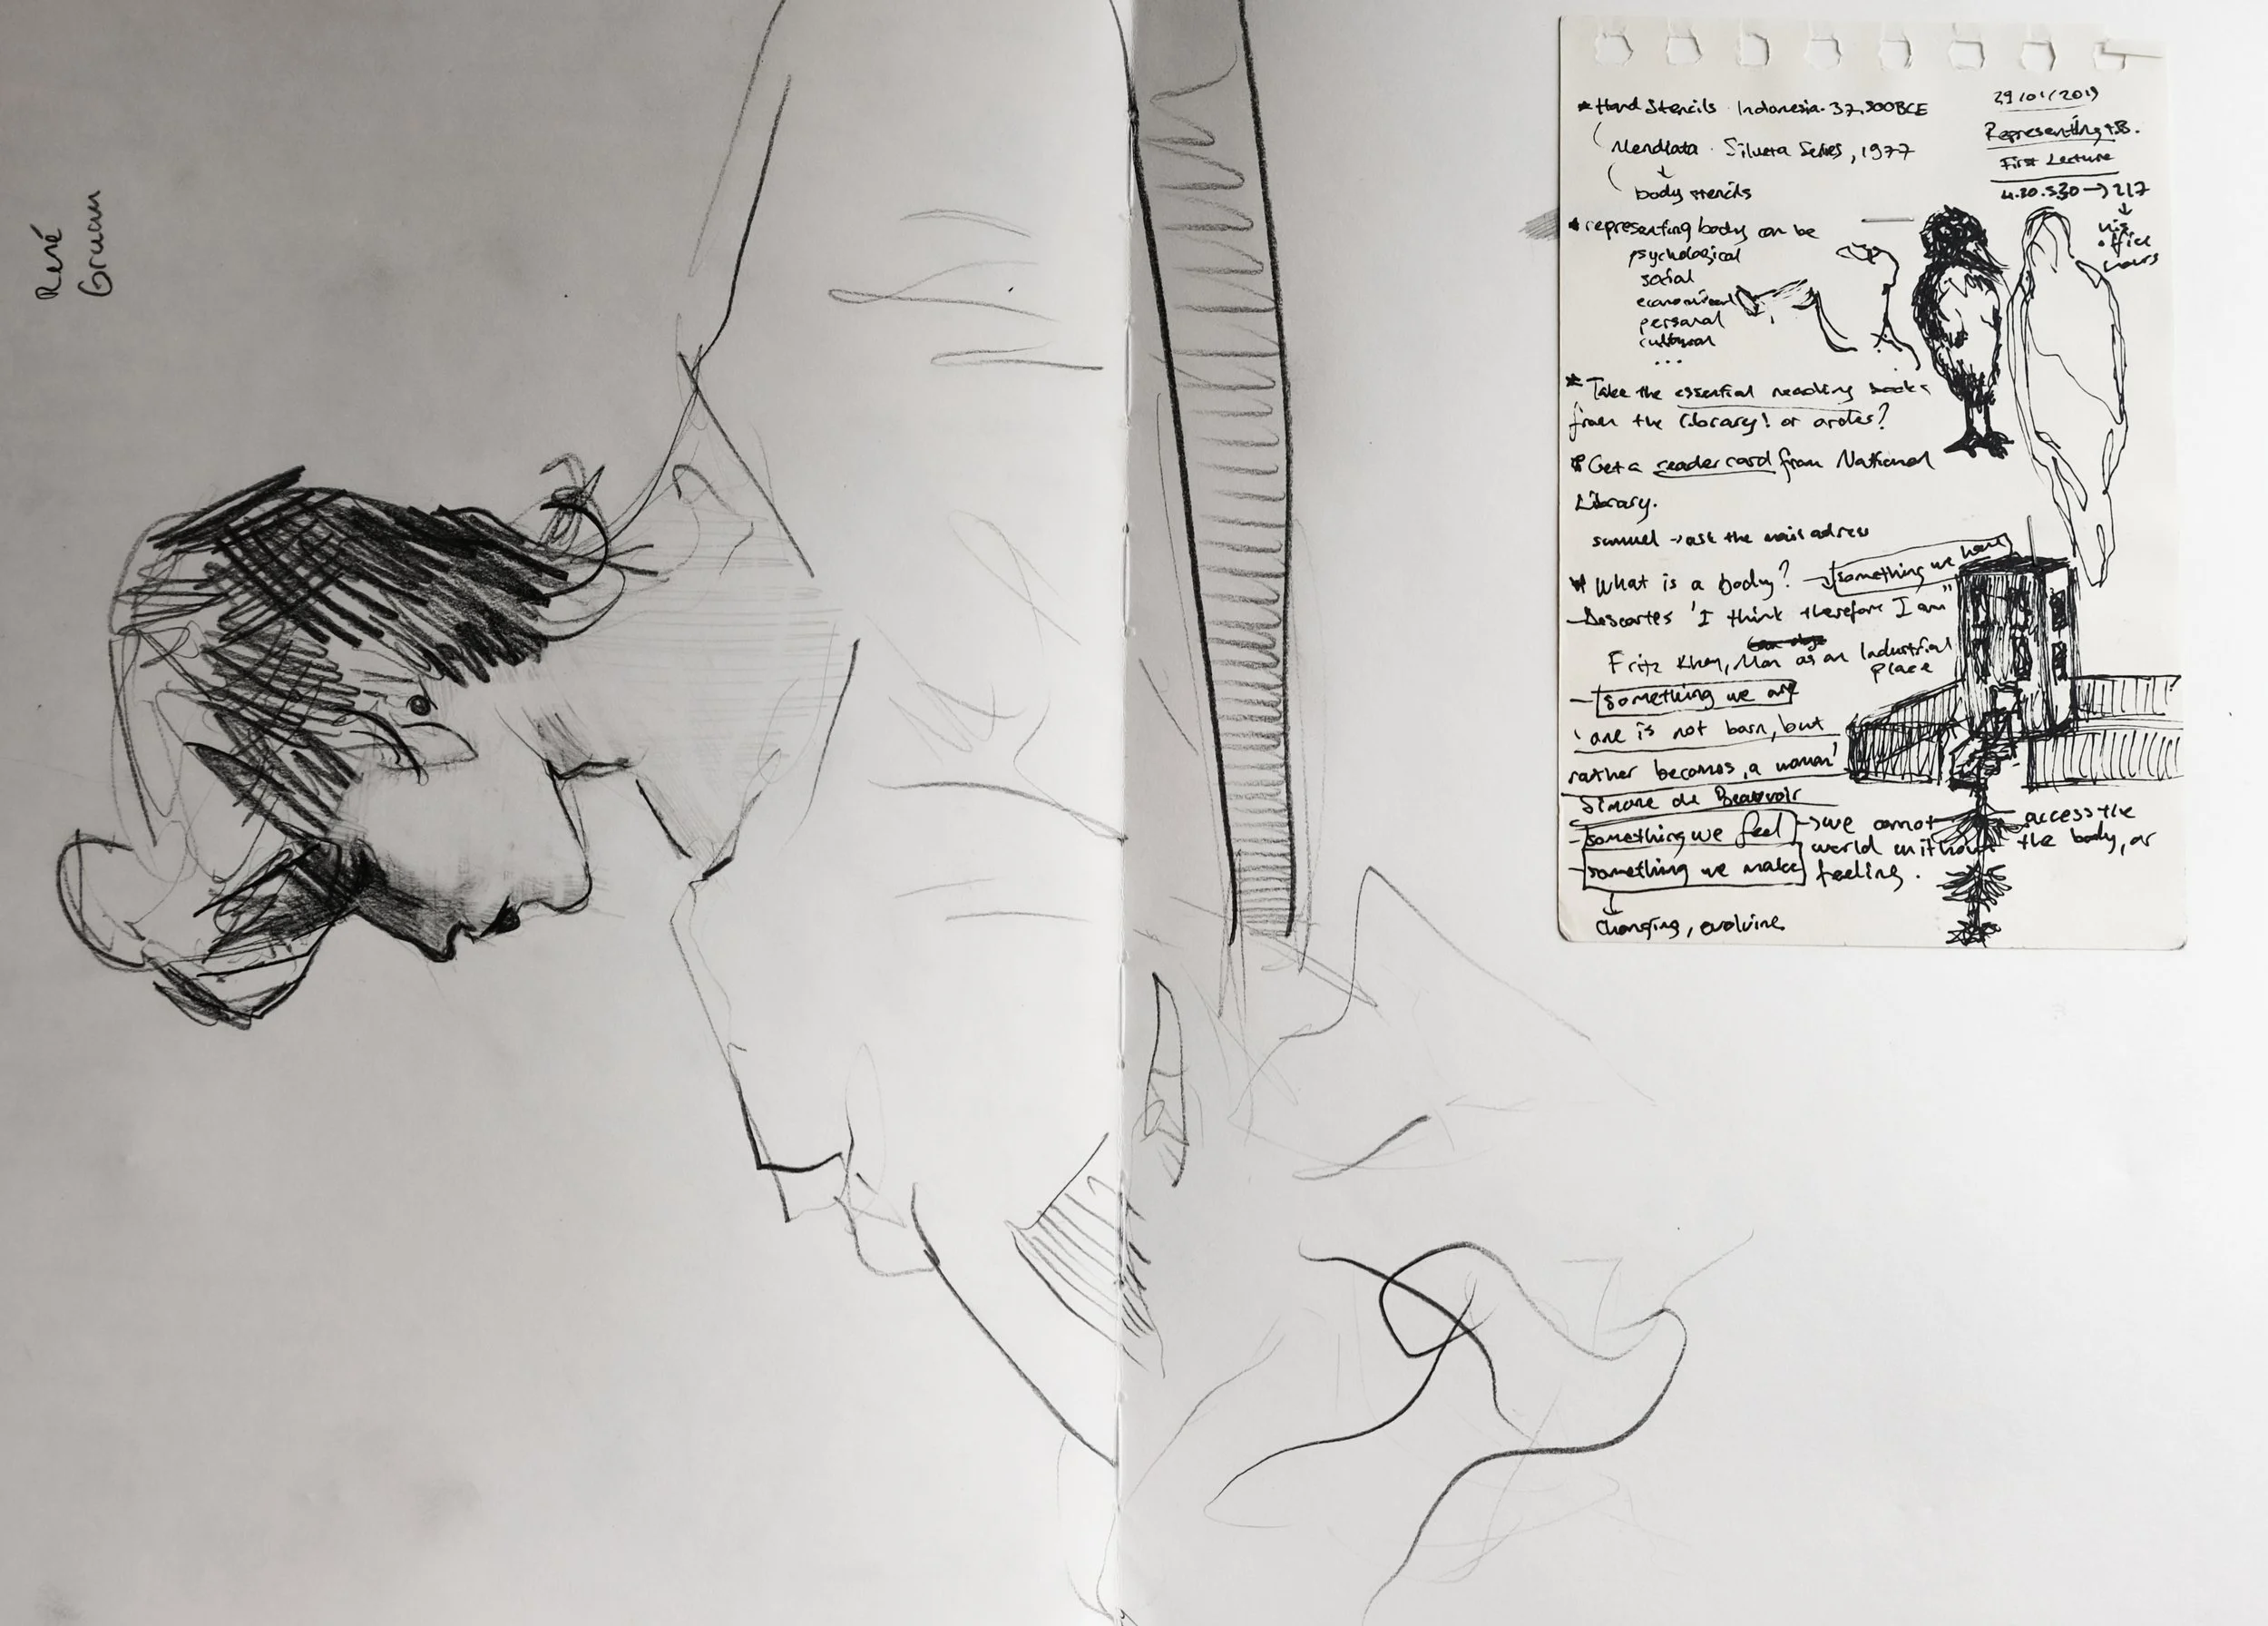 René
Gruau
29/01/2019
Representing t.B.
First Lecture
4.30.5.30 → 217
his
office
hours
* Hand Stencils Indonesia. 37.900BCE
Mendiata. Silueta Series, 1977
body stencils
* representing body can be
psychological
social
economical
personal
cultural
...
* Take the essential reading books
from the library! or order?
* Get a reader card from National
Library.
samuel → ask the mail adress
* What is a body? → something we have
- Descartes 'I think therefore I am"
Fritz Khan, Man as an Industrial
place
- something we are
'one is not born, but
rather becomes, a woman'
Simone de Beauvoir
- something we feel → we cannot access the
world without the body, or
- something we make feeling.
changing, evolving